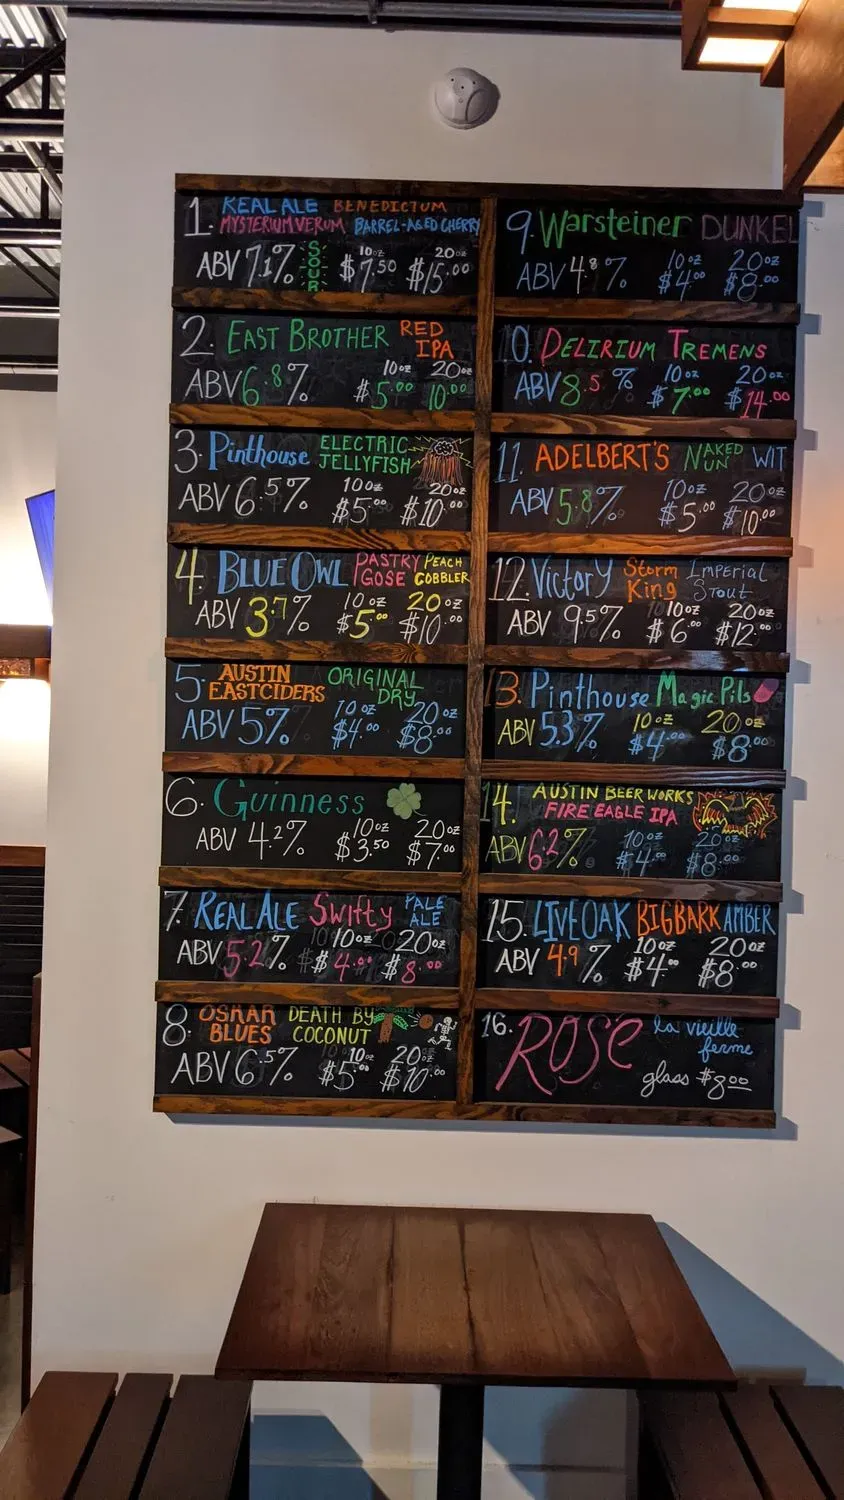 1. REAL ALE BENEDICTUM
MYSTERIUM VERUM BARREL-AGED CHERRY
ABV 7.1% SOUR 10oz $7.50 20oz $15.00
2. EAST BROTHER RED IPA
ABV 6.8% 10oz $5.00 20oz 10.00
3. Pinthouse ELECTRIC JELLYFISH
ABV 6.5% 10oz $5.00 20oz $10.00
4. BLUE OWL PASTRY GOSE PEACH COBBLER
ABV 3.7% 10oz $5.00 20oz $10.00
5. AUSTIN EASTCIDERS ORIGINAL DRY
ABV 5% 10oz $4.00 20oz $8.00
6. Guinness
ABV 4.2% 10oz $3.50 20oz $7.00
7. REAL ALE Swifty PALE ALE
ABV 5.2% 10oz $4.00 20oz $8.00
8. OSKAR BLUES DEATH BY COCONUT
ABV 6.5% 10oz $5.00 20oz $10.00
9. Warsteiner DUNKEL
ABV 4.8% 10oz $4.00 20oz $8.00
10. DELIRIUM TREMENS
ABV 8.5% 10oz $7.00 20oz $14.00
11. ADELBERT'S NAKED NUN WIT
ABV 5.8% 10oz $5.00 20oz $10.00
12. Victory Storm King Imperial Stout
ABV 9.5% 10oz $6.00 20oz $12.00
13. Pinthouse Magic Pils
ABV 5.3% 10oz $4.00 20oz $8.00
14. AUSTIN BEER WORKS
FIRE EAGLE IPA
ABV 6.2% 10oz $4.00 20oz $8.00
15. LIVE OAK BIG BARK AMBER
ABV 4.9% 10oz $4.00 20oz $8.00
16. ROSE la vieille ferme
glass $8.00